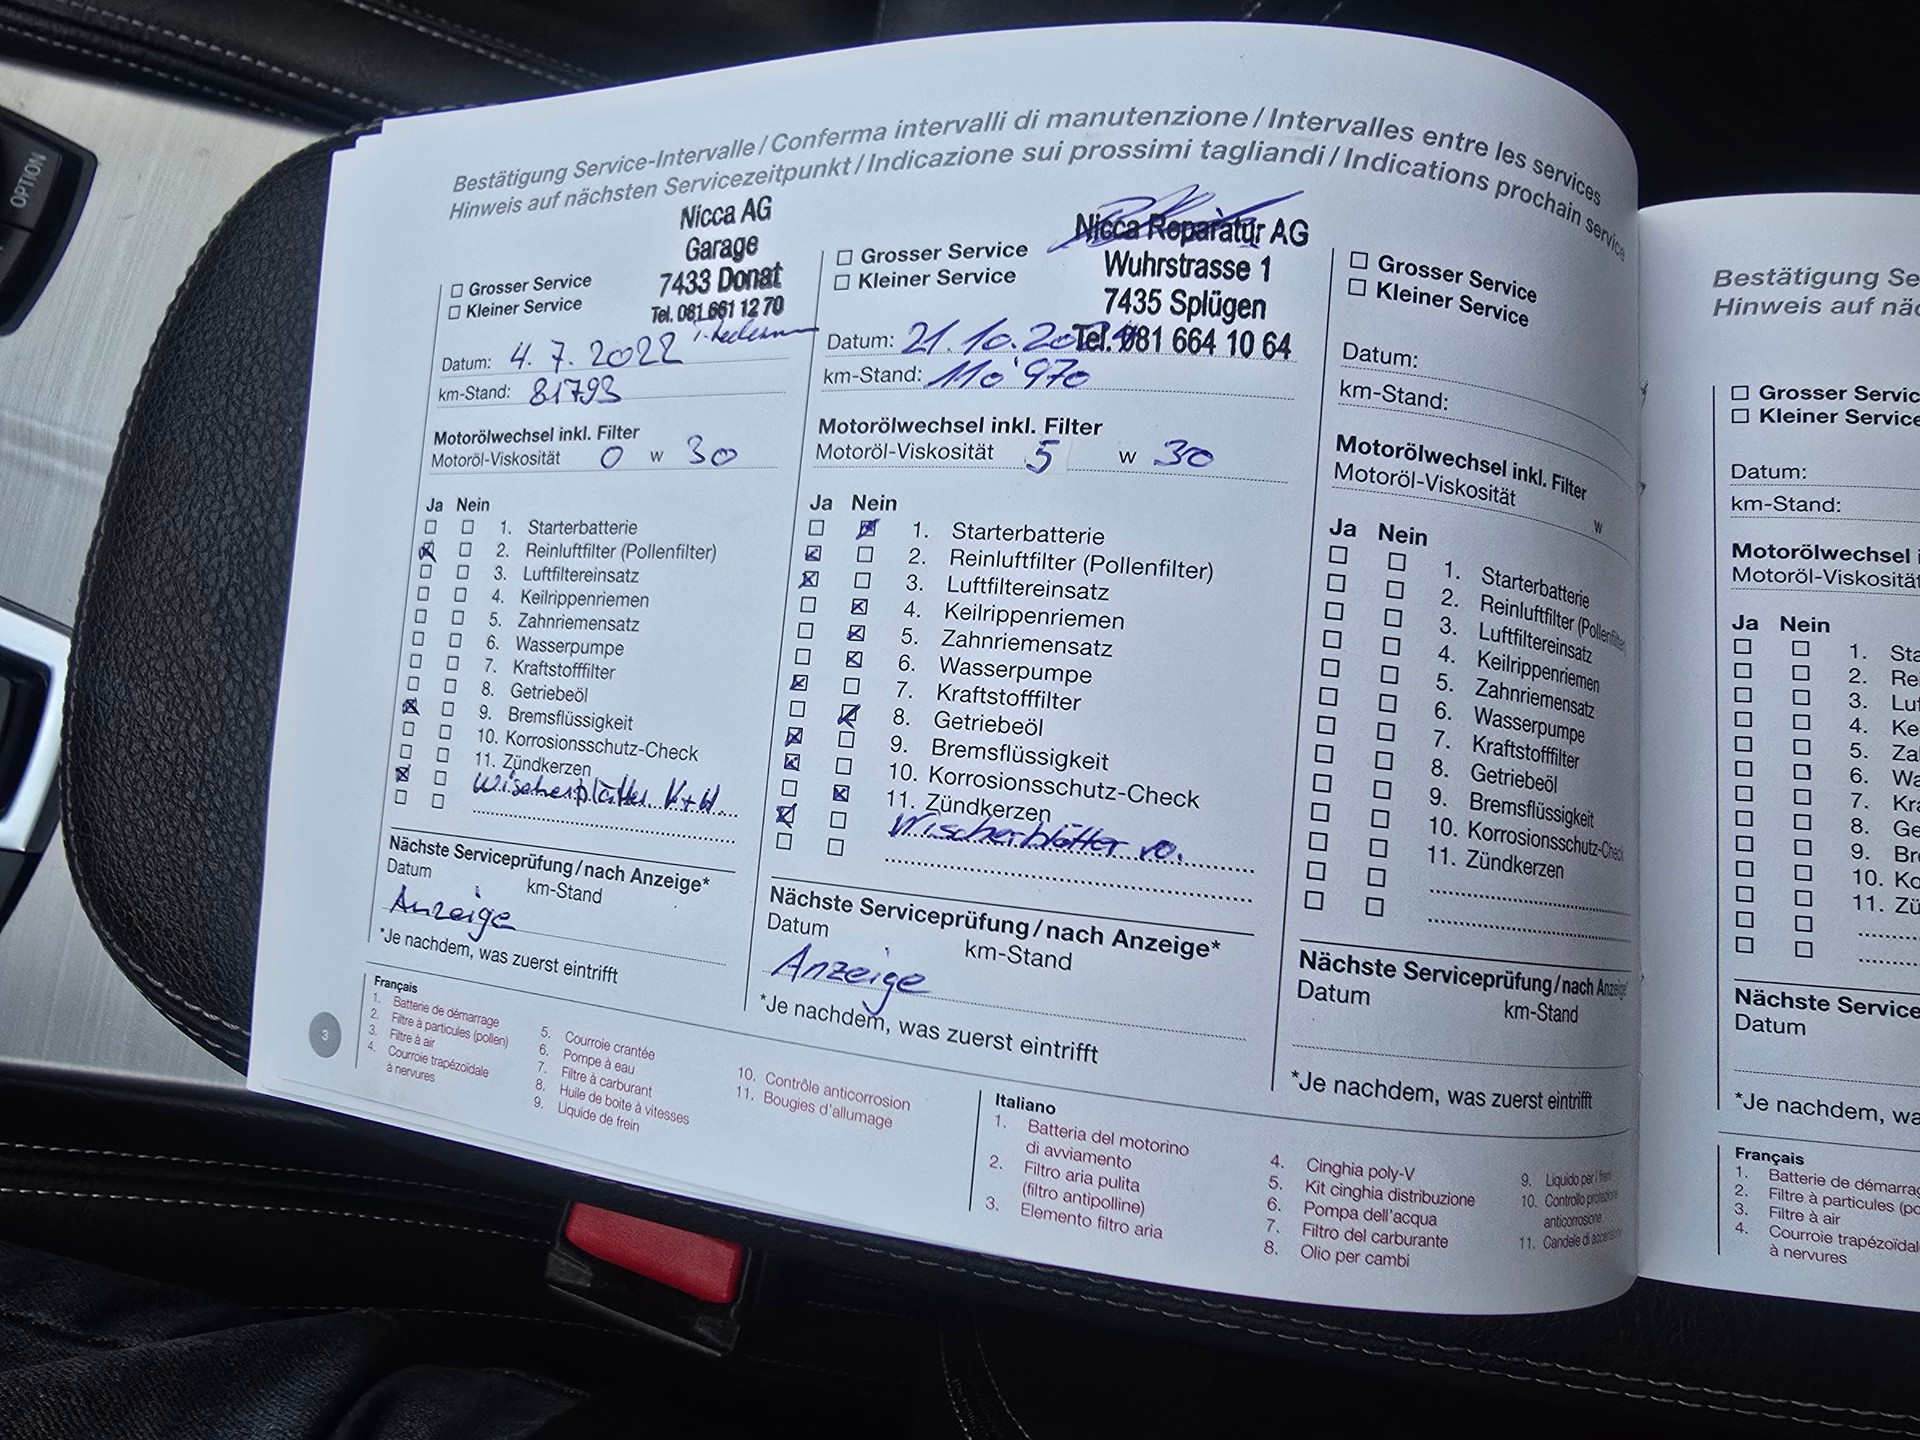 OPTION
Bestätigung Service-Intervalle / Conferma intervalli di manutenzione / Intervalles entre les services
Hinweis auf nächsten Servicezeitpunkt / Indicazione sui prossimi tagliandi / Indications prochain service
Nicca AG
Garage
7433 Donat
Tel. 081 661 12 70
Grosser Service
Kleiner Service
Datum: 4.7.2022
km-Stand: 81793
Motorölwechsel inkl. Filter
Motoröl-Viskosität 0 w 30
Ja Nein
1. Starterbatterie
2. Reinluftfilter (Pollenfilter)
3. Luftfiltereinsatz
4. Keilrippenriemen
5. Zahnriemensatz
6. Wasserpumpe
7. Kraftstofffilter
8. Getriebeöl
9. Bremsflüssigkeit
10. Korrosionsschutz-Check
11. Zündkerzen
Wischerplätter V+H
Nächste Serviceprüfung / nach Anzeige*
Datum km-Stand
Anzeige
*Je nachdem, was zuerst eintrifft
Nicca Reparatur AG
Wuhrstrasse 1
7435 Splügen
Tel. 081 664 10 64
Grosser Service
Kleiner Service
Datum: 21.10.
km-Stand: 110'970
Motorölwechsel inkl. Filter
Motoröl-Viskosität 5 w 30
Ja Nein
1. Starterbatterie
2. Reinluftfilter (Pollenfilter)
3. Luftfiltereinsatz
4. Keilrippenriemen
5. Zahnriemensatz
6. Wasserpumpe
7. Kraftstofffilter
8. Getriebeöl
9. Bremsflüssigkeit
10. Korrosionsschutz-Check
11. Zündkerzen
Wischerblätter vo.
Nächste Serviceprüfung / nach Anzeige*
Datum km-Stand
Anzeige
*Je nachdem, was zuerst eintrifft
Grosser Service
Kleiner Service
Datum:
km-Stand:
Motorölwechsel inkl. Filter
Motoröl-Viskosität w
Ja Nein
1. Starterbatterie
2. Reinluftfilter (Pollenfilter)
3. Luftfiltereinsatz
4. Keilrippenriemen
5. Zahnriemensatz
6. Wasserpumpe
7. Kraftstofffilter
8. Getriebeöl
9. Bremsflüssigkeit
10. Korrosionsschutz-Check
11. Zündkerzen
Nächste Serviceprüfung / nach Anzeige*
Datum km-Stand
*Je nachdem, was zuerst eintrifft
3
Français
1. Batterie de démarrage
2. Filtre à particules (pollen)
3. Filtre à air
4. Courroie trapézoïdale
à nervures
5. Courroie crantée
6. Pompe à eau
7. Filtre à carburant
8. Huile de boite à vitesses
9. Liquide de frein
10. Contrôle anticorrosion
11. Bougies d'allumage
Italiano
1. Batteria del motorino
di avviamento
2. Filtro aria pulita
(filtro antipolline)
3. Elemento filtro aria
4. Cinghia poly-V
5. Kit cinghia distribuzione
6. Pompa dell'acqua
7. Filtro del carburante
8. Olio per cambi
9. Liquido per i freni
10. Controllo protezione
anticorrosione
11. Candele di accensione
Bestätigung Se
Hinweis auf näc
Grosser Servic
Kleiner Service
Datum:
km-Stand:
Motorölwechsel i
Motoröl-Viskosität
Ja Nein
1. Sta
2. Rei
3. Luf
4. Kei
5. Zal
6. Wa
7. Kra
8. Ge
9. Bre
10. Ko
11. Zü
Nächste Service
Datum
*Je nachdem, wa
Français
1. Batterie de démarrag
2. Filtre à particules (po
3. Filtre à air
4. Courroie trapézoïdal
à nervures